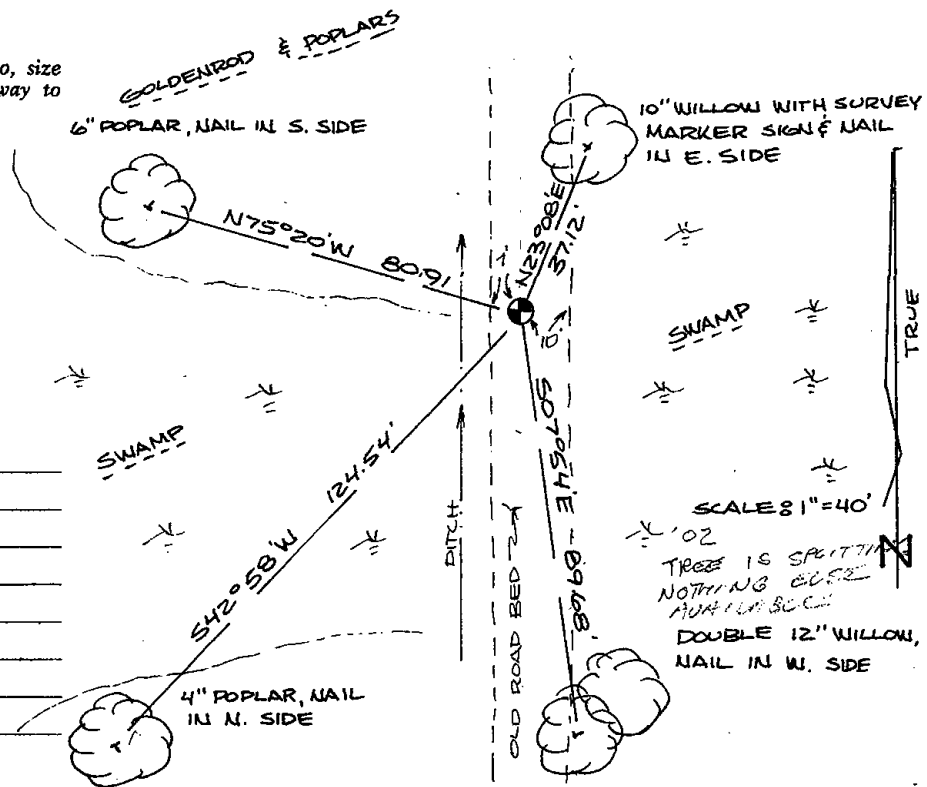 o, size
way to
GOLDENROD & POPLARS
6" POPLAR, NAIL IN S. SIDE
10" WILLOW WITH SURVEY
MARKER SIGN & NAIL
IN E. SIDE
N75°20'W 80.91
N23°08'E
37.12'
10'
SWAMP
TRUE
SWAMP
S42°58'W 124.54'
S07°54'E - 89.68'
DITCH
OLD ROAD BED
SCALE: 1"=40'
N
'02
TREE IS SPLITTIN
NOTHING ELSE
AVAILABLE
DOUBLE 12" WILLOW,
NAIL IN W. SIDE
4" POPLAR, NAIL
IN N. SIDE